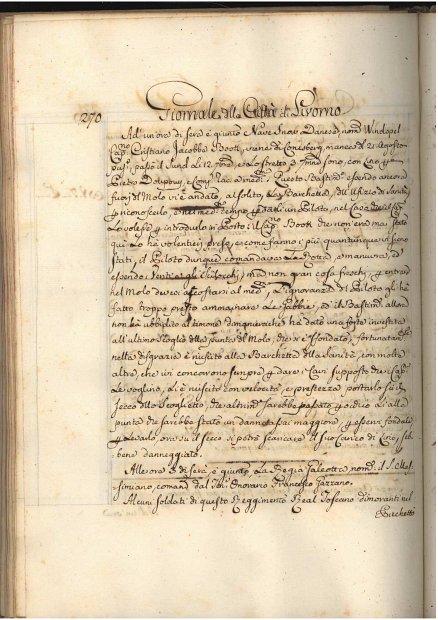 270 Giornale della Città di Livorno
Ad un'ora di sera è giunto Nave Snow Danese, nom.
Cap.no Cristiano Jacobbe Booth, viene di Conisberg, manca d. 21 Agosto
pas.o, passò il Sund al 12 e lo stretto sono, con Lino, p
Pietro e Comp. racomed. Questo Bastim.to essendo ancora
fuori del Molo vi è andato, al solito, La Barchetta dell'Ufizio di Sanità
p riconoscerlo, e nel med.mo tempo p darli un Piloto, nel Caso che il Cap.
Lo volesse p introdurlo in Porto; il Cap.no Booth che non era mai stato
qui Lo ha volentieri preso, e come fanno i più quantunque vi siano
stati, il Piloto dunque comandava La Rotta, e manuvra, ed
essendo i Venti a gli Scilocchi, ma non gran cosa freschi, p entrar
nel Molo dovè accostarsi al med.mo, L'ignoranza del Piloto gli ha
fatto troppo presto ammainare Le Gabbie, ed il Bastim.to allora
non ha ubbidito al timone dimanierachè ha dato una forte investita
all'ultimo Scoglio della punta del Molo, che si è sfondato, fortunatam.te
nella disgrazia è riuscito alla Barchetta della Sanità, con molte
altre, che vi concorrono sempre p dare i Cavi supposto che i Cap.
Le voglino, di è riuscito con velocità, e prestezza portarlo sul
secco dello Scoghetto, che altrim.ti sarebbe andato a picco, e alla
punta che sarebbe stato un danno assai maggiore, p essersi fondato
p Levarlo, ora su il secco si potrà scaricare il suo carico di Lino, seb-
bene danneggiato.
Alle ore 3 di sera è giunto La Regia Galeotta nom. il S. Mas-
simiano, comand. dal Sig. Onorario Francesco Gazzano.
Alcuni soldati di questo Reggimento Real Toscano dimoranti nel